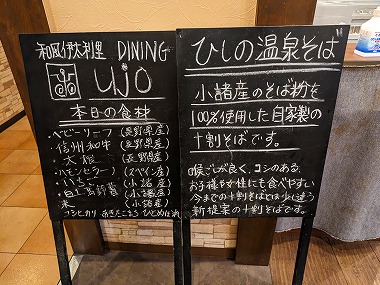 和風伊太利里 DINING
ujo
本日の食材
・ベビーリーフ (長野県産)
・信州和牛 (長野県産)
・大根 (長野県産)
・ハモンセラーノ (スペイン産)
(小諸産)
・白土馬鈴薯 (小諸産)
・米 (小諸産)
コシヒカリ あきたこまち
ひしの温泉そば
小諸産のそば粉を
100%使用した自家製の
十割そばです。
喉ごしが良く、コシのある、
お子様や女性にも食べやすい
今までの十割そばとは少し違う
新提案の十割そばです。